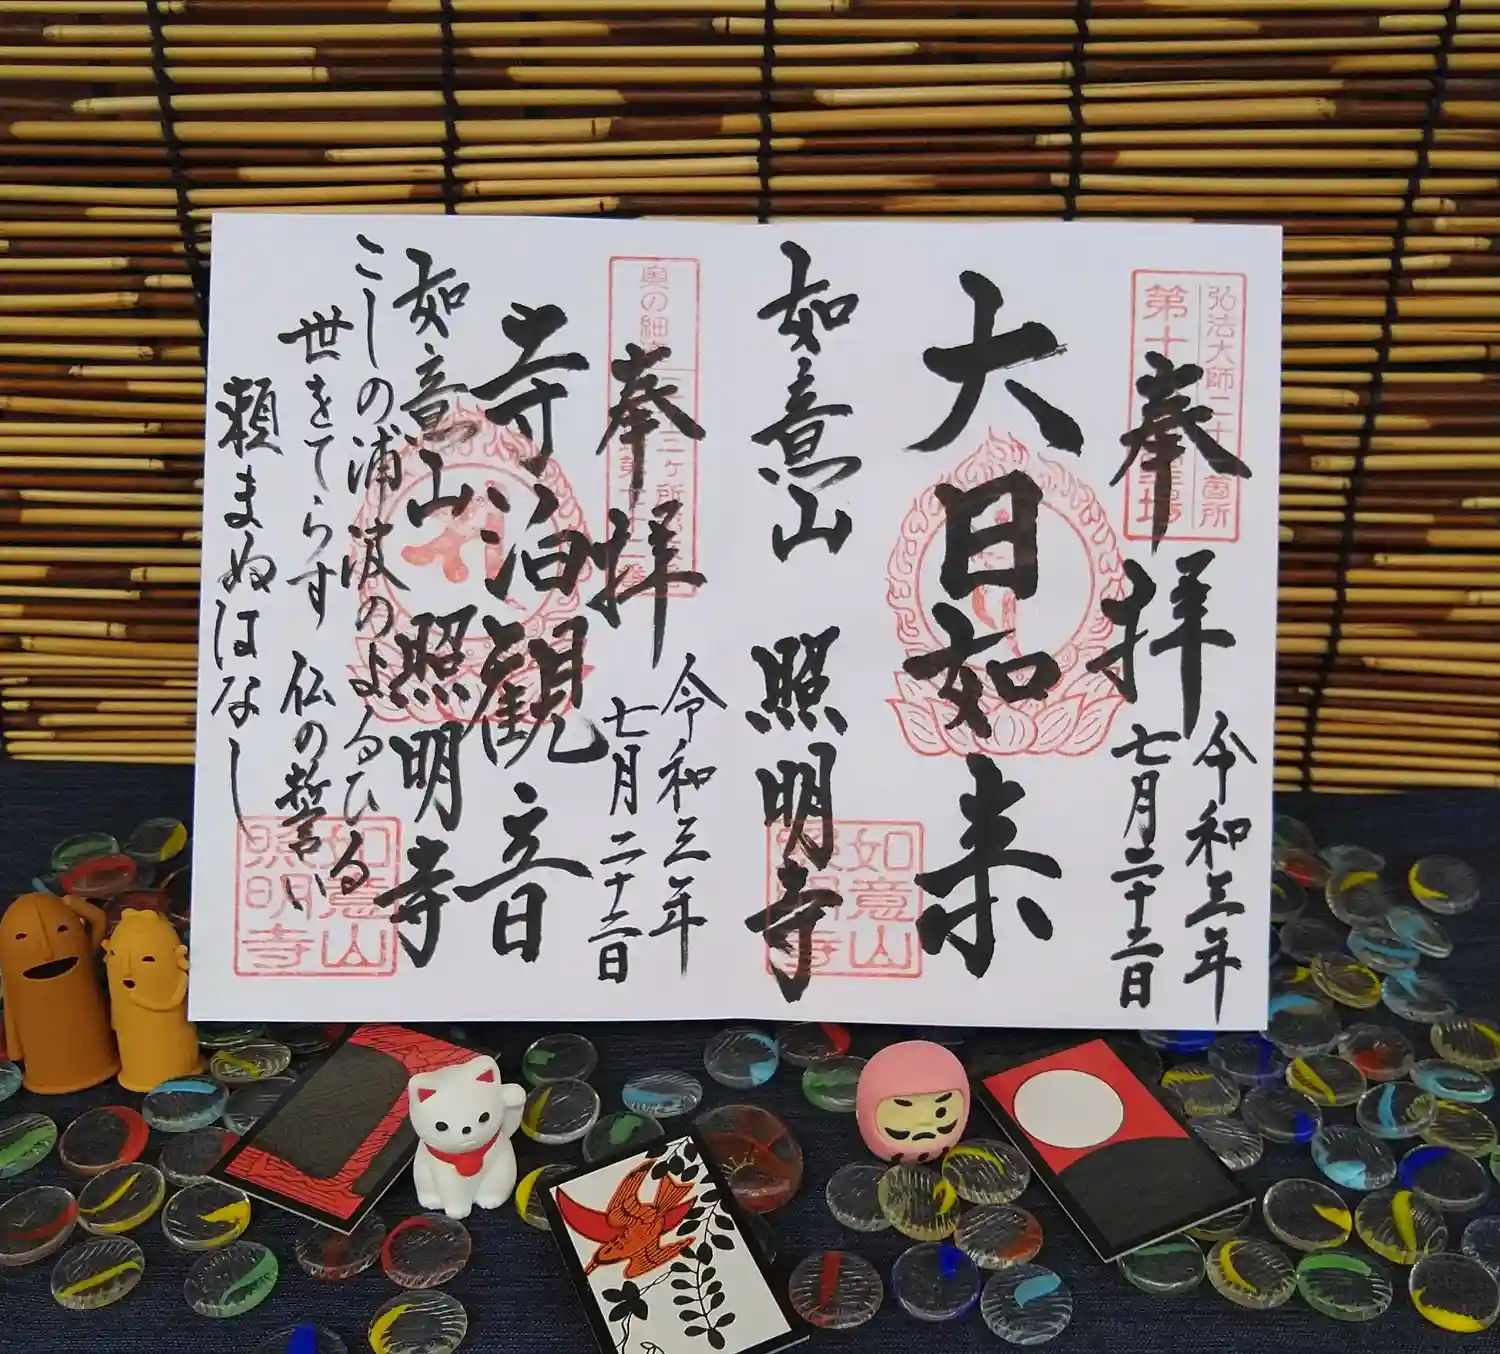 弘法大師二十一箇所
奉拝
令和三年
七月二十三日
大日如来
如意山 照明寺
如意山
照明寺
奉拝
令和三年
七月二十三日
寺泊観音
如意山 照明寺
こしの浦 波のよるひる
世をてらす 仏の誓い
頼まぬはなし
如意山
照明寺